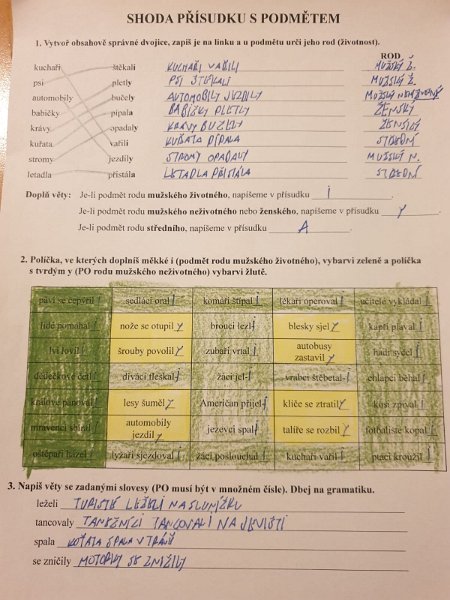 SHODA PŘÍSUDKU S PODMĚTEM
1. Vytvoř obsahově správné dvojice, zapiš je na linku a u podmětu urči jeho rod (životnost).
ROD
kuchaři štěkali KUCHAŘI VAŘILI MUŽSKÝ Ž.
psi pletly PSI ŠTĚKALI MUŽSKÝ Ž.
automobily bučely AUTOMOBILY JEZDILY MUŽSKÝ
babičky pípala BABIČKY PLETLY ŽENSKÝ
krávy opadaly KRÁVY BUČELY ŽENSKÝ
kuřata vařili KUŘATA PÍPALA STŘEDNÍ
stromy jezdily STROMY OPADALY MUŽSKÝ N.
letadla přistála LETADLA PŘISTÁLA STŘEDNÍ
Doplň věty: Je-li podmět rodu mužského životného, napíšeme v přísudku I
Je-li podmět rodu mužského neživotného nebo ženského, napíšeme v přísudku Y
Je-li podmět rodu středního, napíšeme v přísudku A
2. Políčka, ve kterých doplníš měkké i (podmět rodu mužského životného), vybarvi zeleně a políčka
s tvrdým y (PO rodu mužského neživotného) vybarvi žlutě.
pávi se čepýřil i sedláci oral i komáři štípal i lékaři operoval i učitelé vykládal i
lidé pomáhal i nože se otupil y brouci lezl i blesky sjel y kapři plaval i
lvi lovil i šrouby povolil y zubaři vrtal i autobusy
zastavil y hadi syčel i
dědečkové četl i diváci tleskal i žáci jel i vrabci štěbetal i chlapci běhal i
králové panoval i lesy šuměl y Američan přijel i klíče se ztratil y kosi zpíval i
mravenci sbíral i automobily
jezdil y jezevci spal i talíře se rozbil y fotbalisté kopal i
ošetřil i lyžaři sjezdoval i žáci poslouchal i kuchaři vařil i ptáci kroužil i
3. Napiš věty se zadanými slovesy (PO musí být v množném čísle). Dbej na gramatiku.
leželi TURISTÉ LEŽELI NA SLUNÍČKU
tancovaly TANEČNÍCI TANCOVALI NA JEVIŠTI
spala KOŤATA SPALA V TRÁVĚ
se zničily MOTORKY SE ZNIČILY